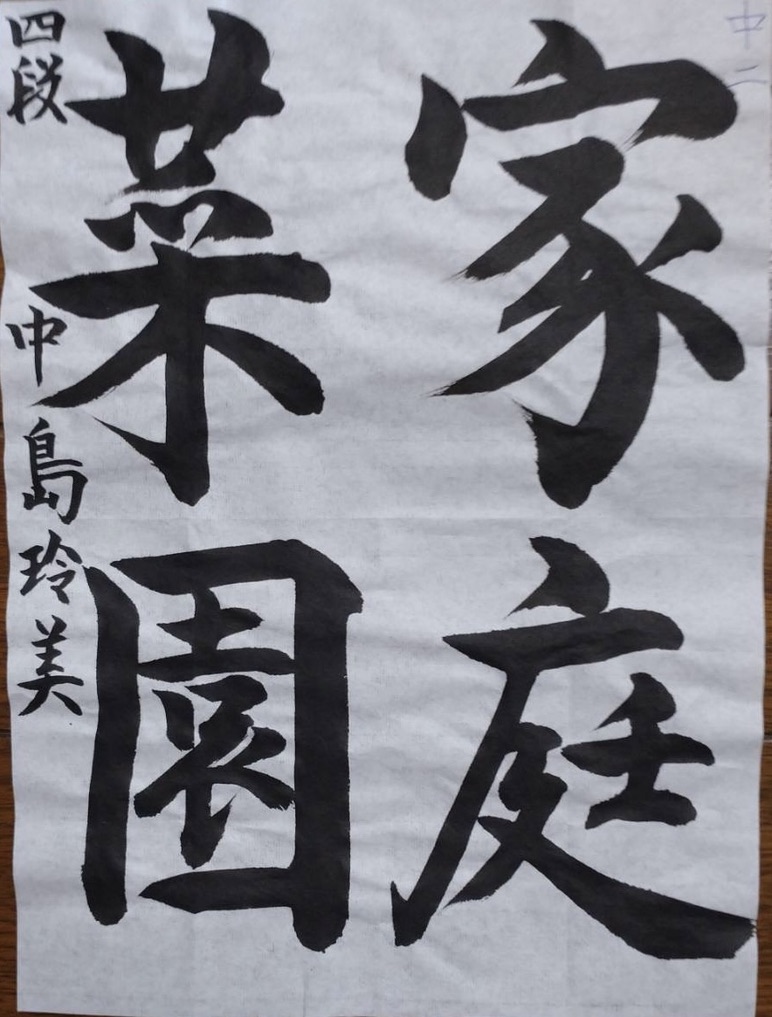 中二
家庭
菜園
四段 中島玲美